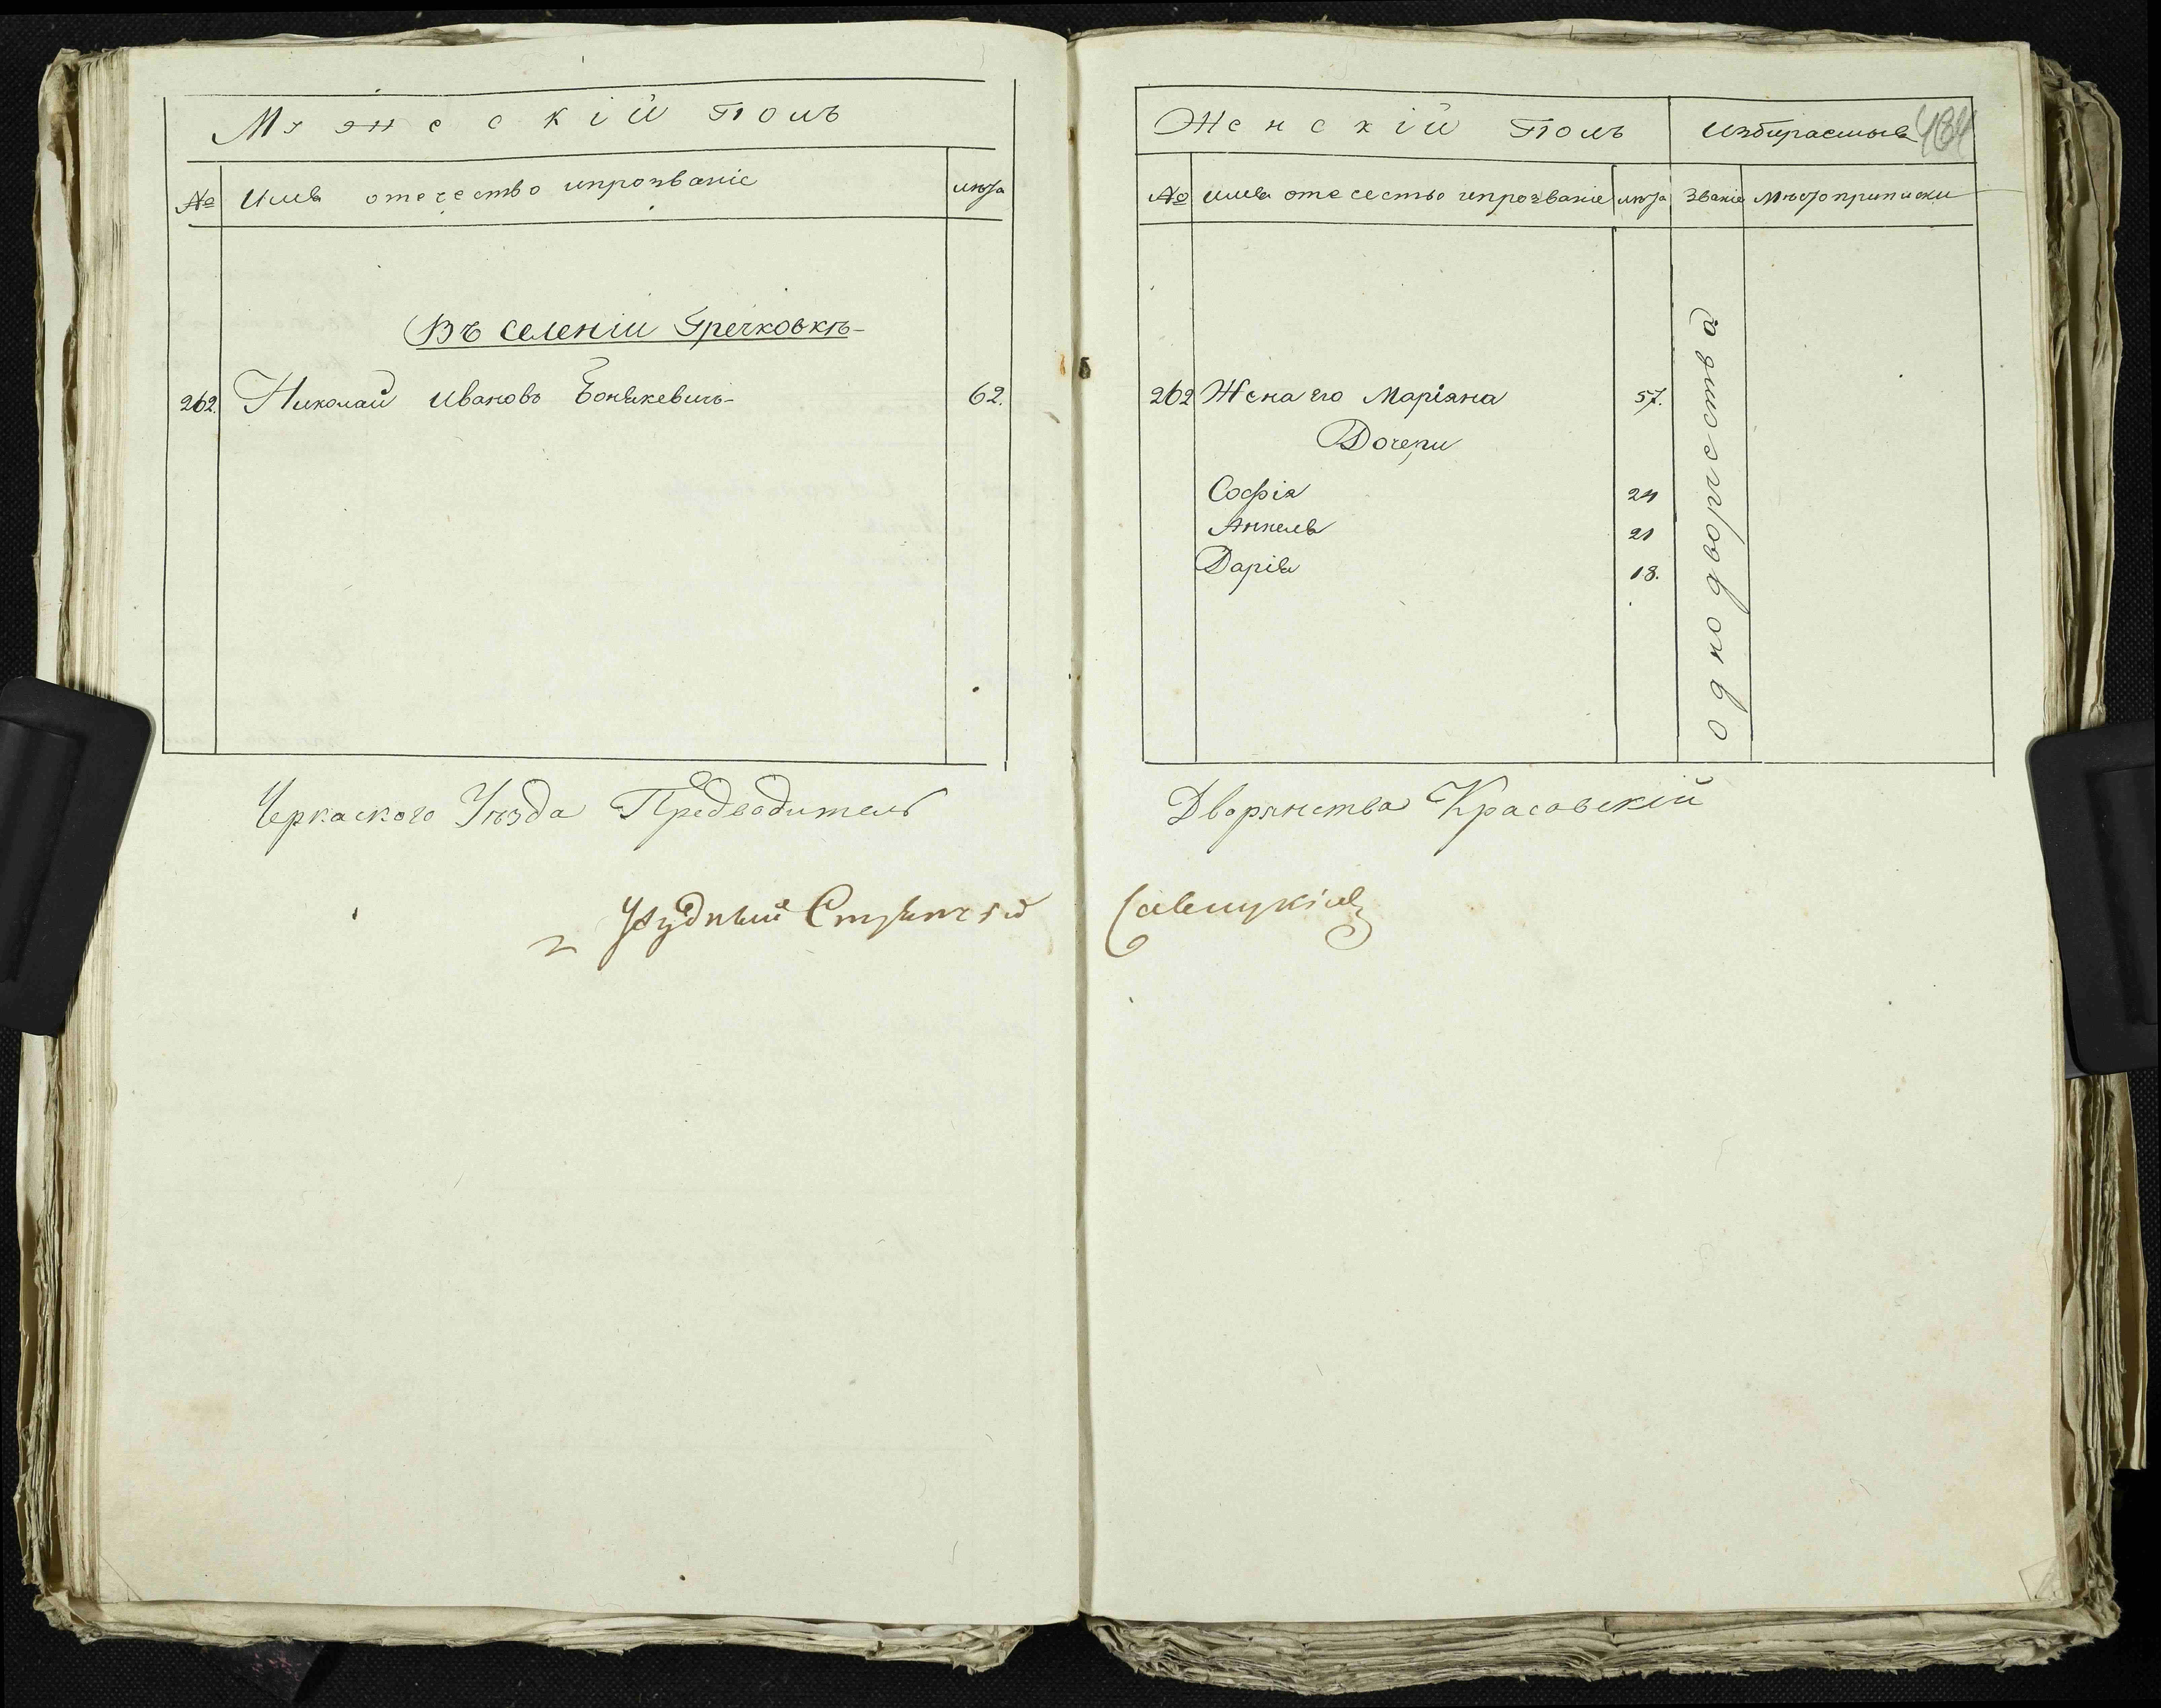 Мужескій полъ
№ Имя отечество ипрозваніе лѣта
Въ селеніи Гречковкѣ
262. Николай Ивановъ Бонякевичъ 62.
Черкаского Уѣзда Предводитель
Уѣздный Стряпчій
Женскій полъ Избираемыя 484
№ Имя отечество ипрозваніе лѣта Званіе Мѣсто приписки
262 Жена его Маріяна 57.
Дочери
Софія 24
Анеля 21
Дарія 18.
однодворчества
Дворянства Красовскій